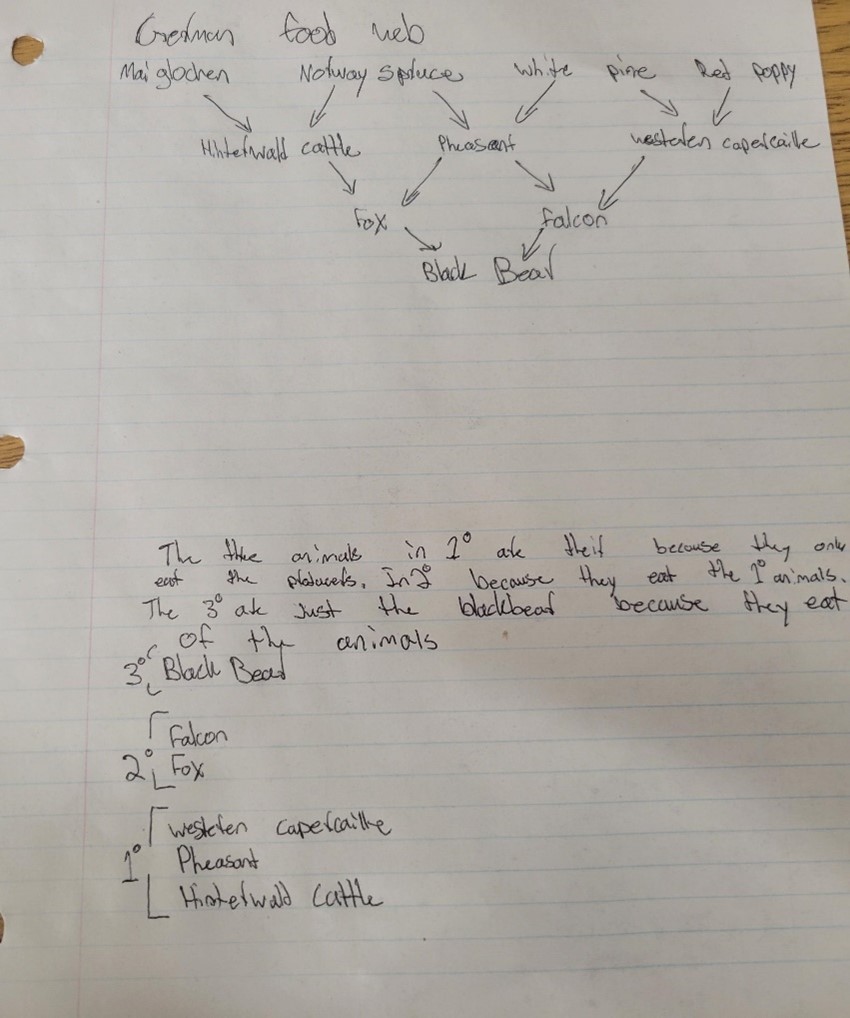 German food web
Maiglochen Norway spruce White pine Red poppy
Hinterwald cattle Pheasant westeren capercaille
Fox falcon
Black Bear
The thre animals in 1° are their because they only
eat the producers. In 2° because they eat the 1° animals.
The 3° are just the blackbear because they eat
of the animals
3° Black Bear
falcon
2° Fox
westeren capercaille
1° Pheasant
Hinterwald Cattle